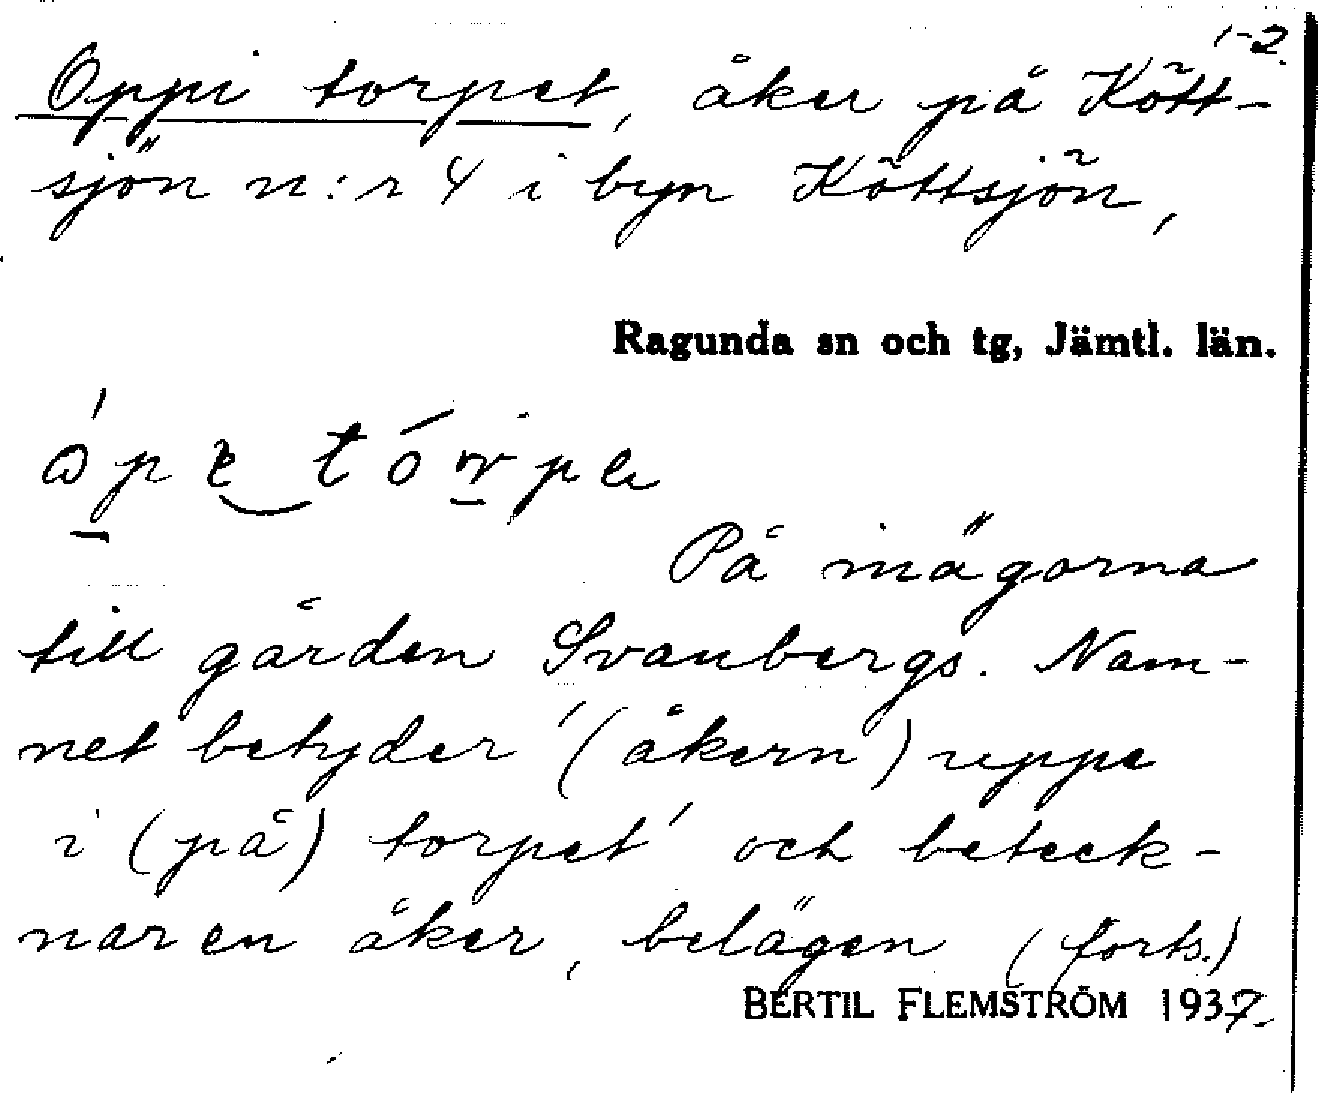 1-2.
Oppi torpet, åker på Kött-
sjön n:r 4 i byn Köttsjön,
Ragunda sn och tg, Jämtl. län.
På inägorna
till gården Svanbergs. Nam-
net betyder '(åkern) uppe
i (på) torpet' och beteck-
nar en åker, belägen (forts.)
BERTIL FLEMSTRÖM 1937.